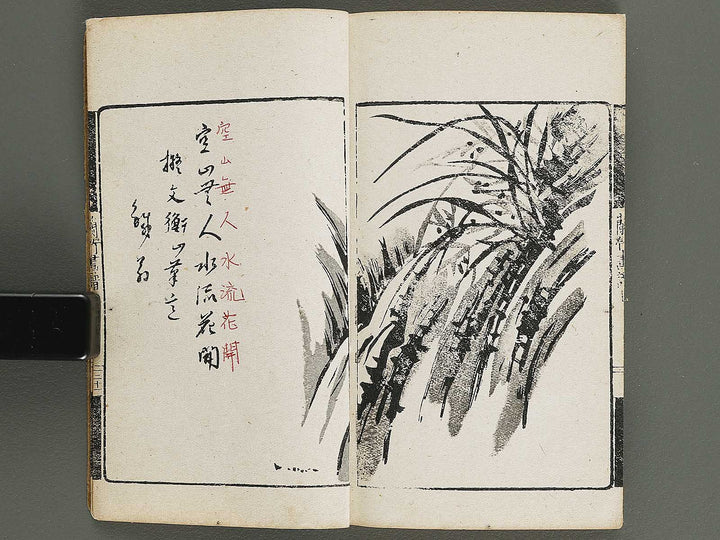 空山無人水流花開
空山無人水流花開
擬文衡山筆意
蘭竹畫譜